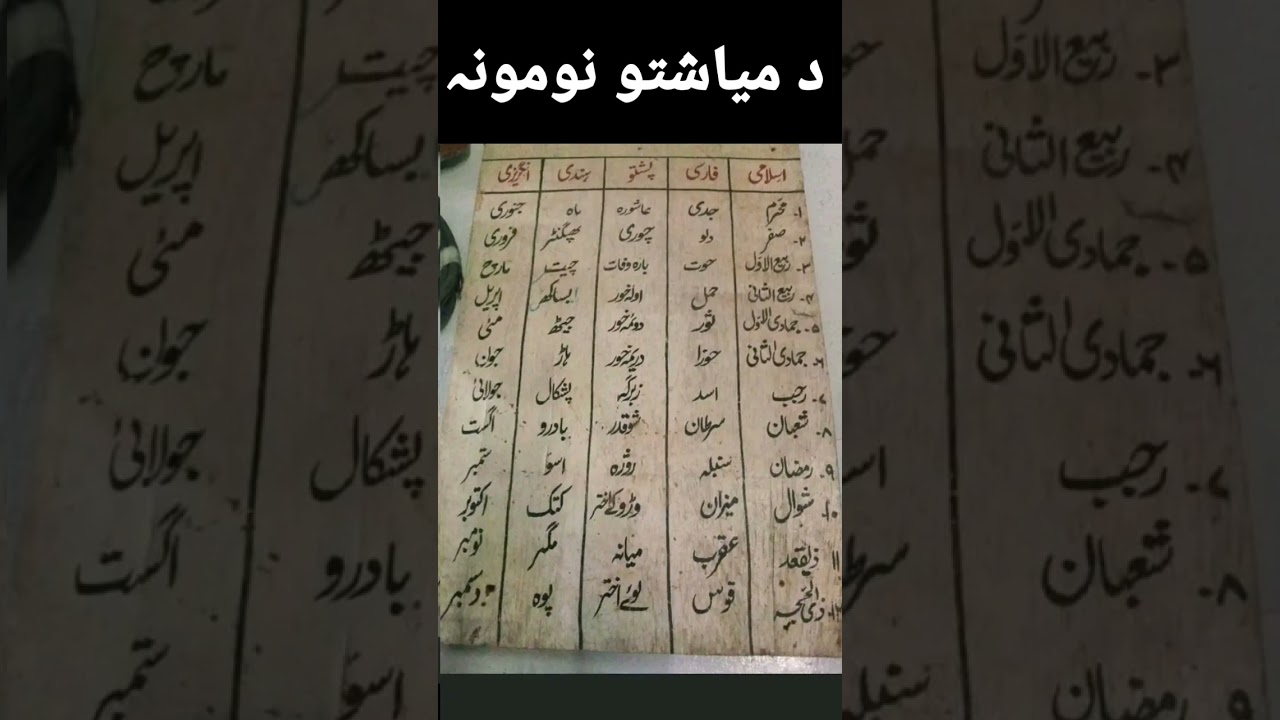 د میاشتو نومونہ
اسلامی فارسی پشتو ہندی انگریزی
۱۔ محرم جدی عاشورہ ماہ جنوری
۲۔ صفر دلو چوری پھگنڑ فروری
۳۔ ربیع الاوّل حوت بارہ وفات چیت مارچ
۴۔ ربیع الثانی حمل اولہ خور بیساکھ اپریل
۵۔ جمادی الاوّل ثور دوئمہ خور جیٹھ مئی
۶۔ جمادی الثانی جوزا دریمہ خور ہاڑ جون
۷۔ رجب اسد زبرگہ پشکال جولائی
۸۔ شعبان سرطان شوقدر بادرو اگست
۹۔ رمضان سنبلہ روژہ اسو ستمبر
۱۰۔ شوال میزان وڑوکے اختر کتک اکتوبر
۱۱ ذیقعد عقرب میانہ مگہر نومبر
۱۲۔ ذی الحجہ قوس لوئے اختر پوہ دسمبر